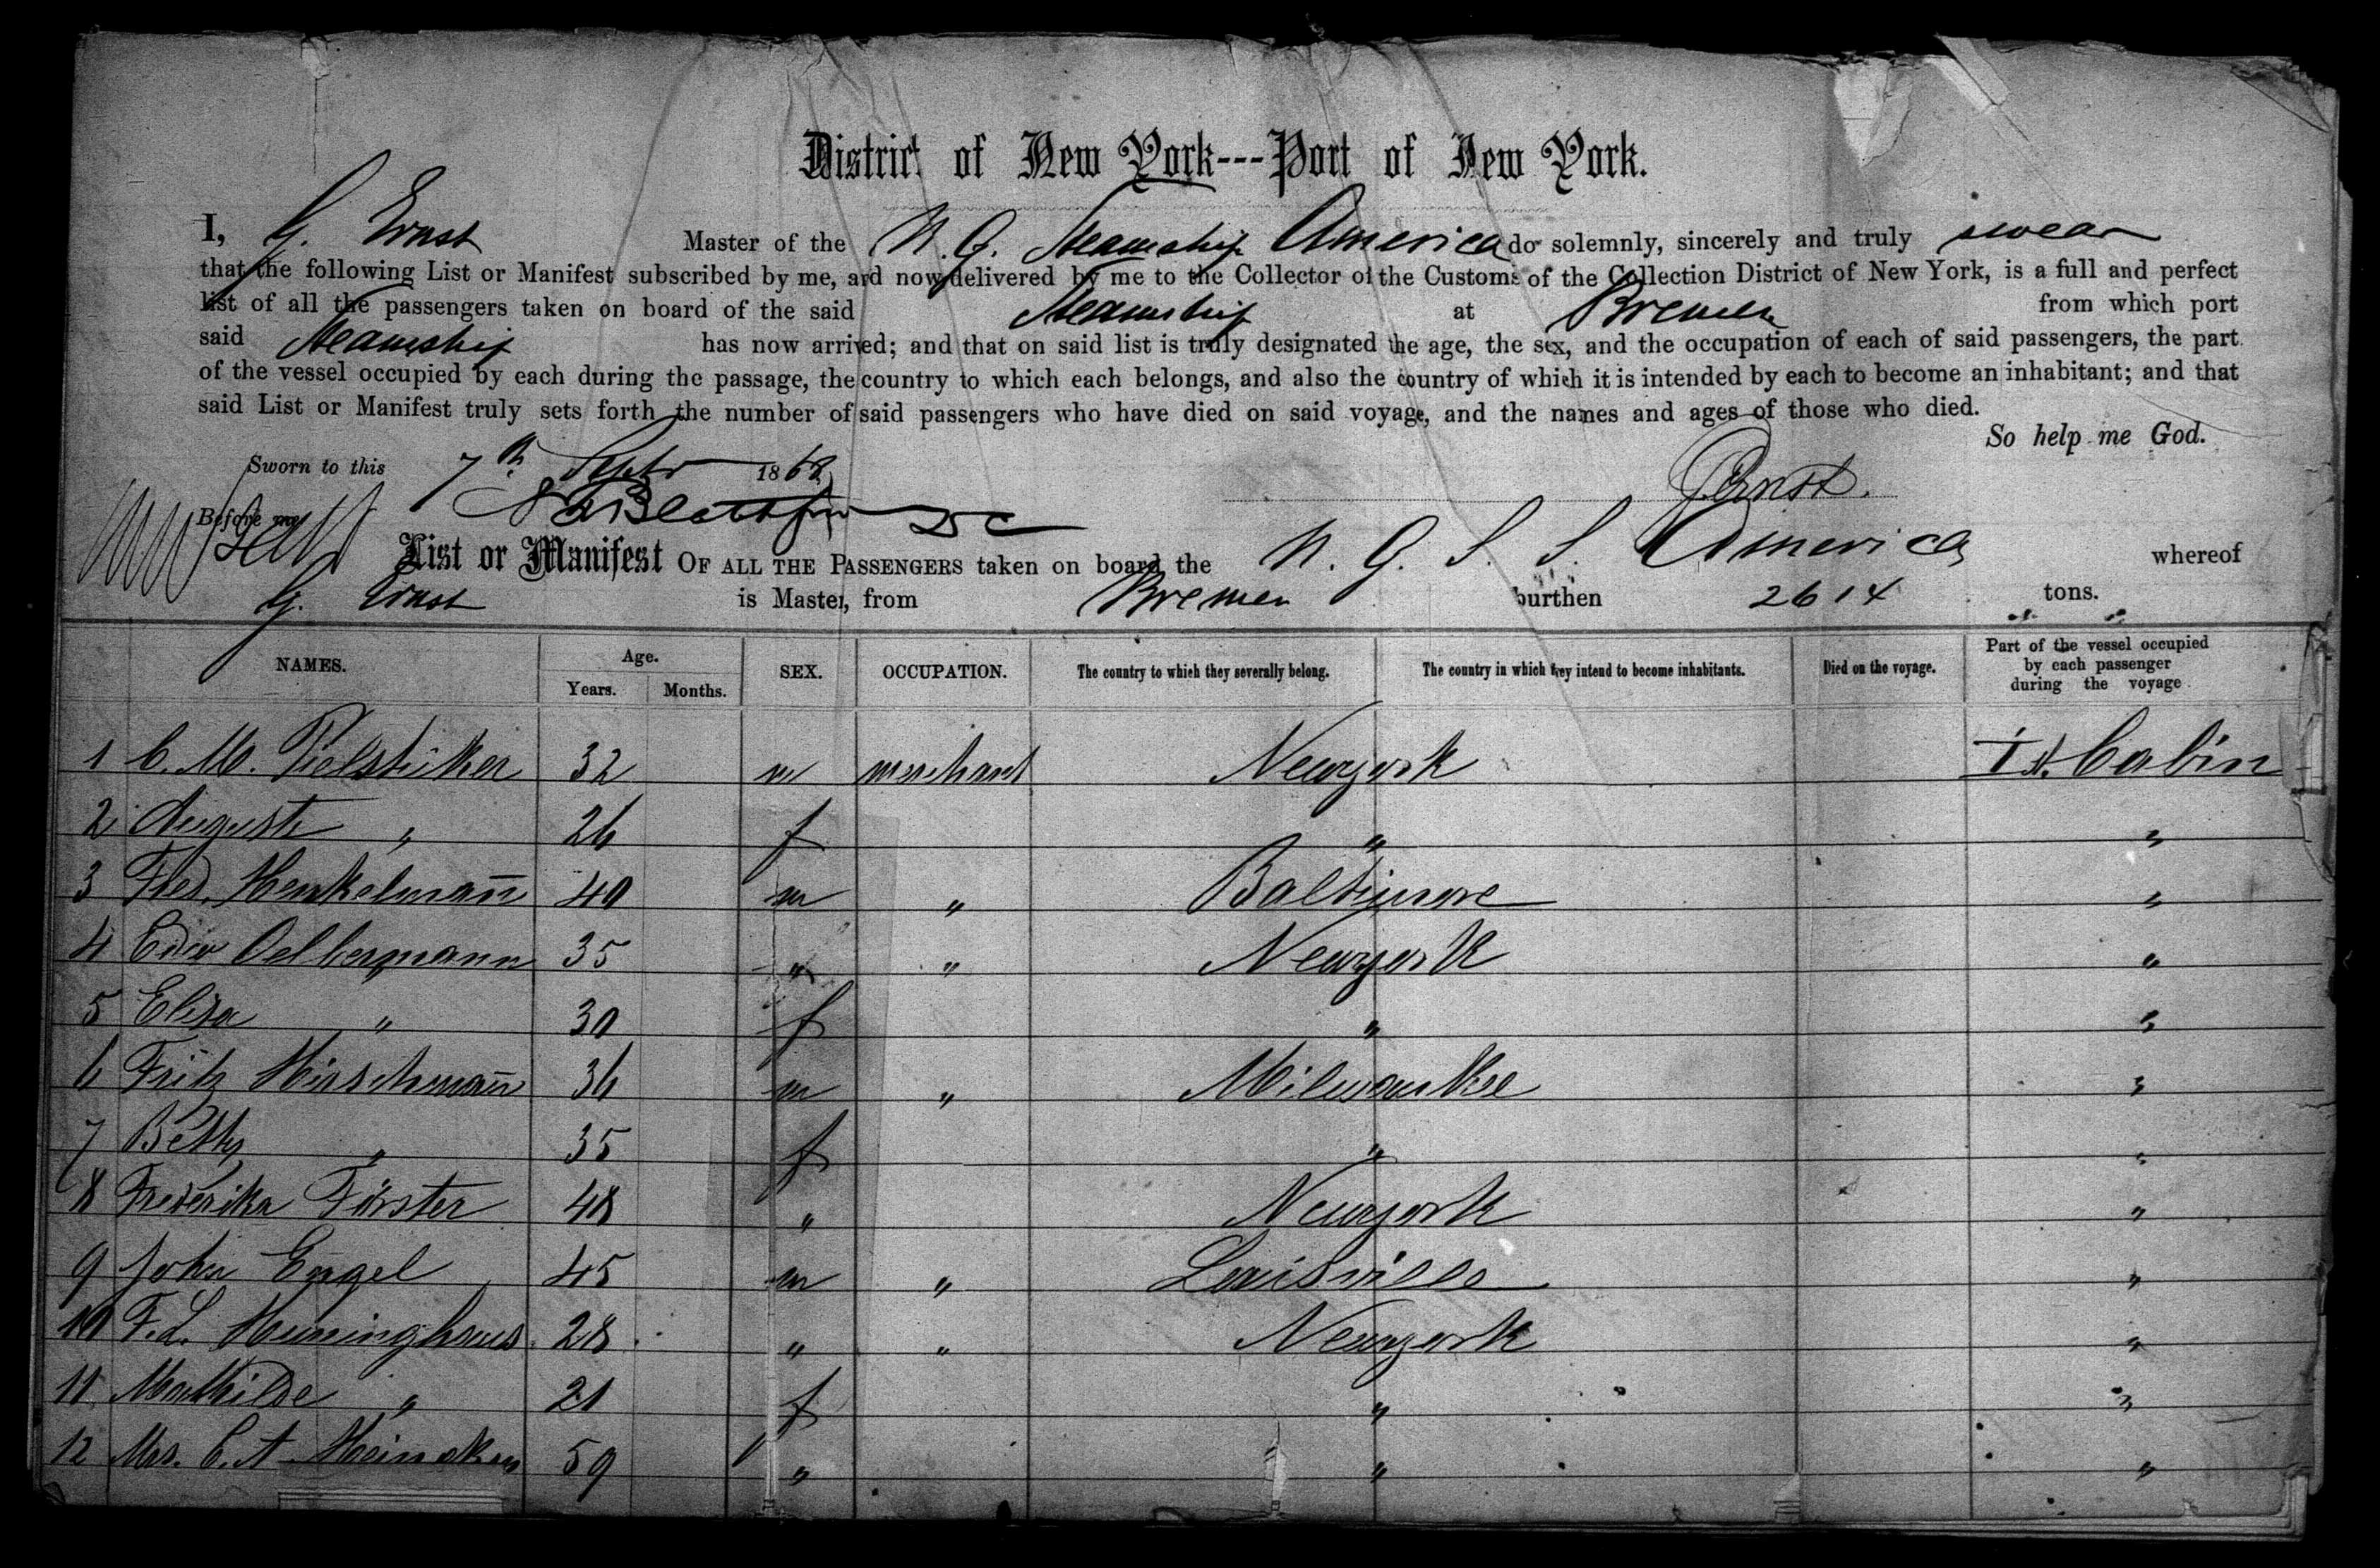 District of New York---Port of New York.
I, G. Ernst Master of the N. G. Steamship America do solemnly, sincerely and truly swear
that the following List or Manifest subscribed by me, and now delivered by me to the Collector of the Customs of the Collection District of New York, is a full and perfect
list of all the passengers taken on board of the said Steamship at Bremen from which port
said Steamship has now arrived; and that on said list is truly designated the age, the sex, and the occupation of each of said passengers, the part
of the vessel occupied by each during the passage, the country to which each belongs, and also the country of which it is intended by each to become an inhabitant; and that
said List or Manifest truly sets forth the number of said passengers who have died on said voyage, and the names and ages of those who died.
So help me God.
Sworn to this 7th Septr 1868
G. Ernst.
Before me
List or Manifest OF ALL THE PASSENGERS taken on board the N. G. S. S. America whereof
G. Ernst is Master, from Bremen burthen 2614 tons.
NAMES. Age. Years. Months. SEX. OCCUPATION. The country to which they severally belong. The country in which they intend to become inhabitants. Died on the voyage. Part of the vessel occupied by each passenger during the voyage
1 C. M. Pielsticker 32 m merchant Newyork Ist. Cabin
2 Auguste " 26 f " "
3 Fred. Henkelmann 40 m " Baltimore "
4 Edw Oelbermann 35 " " Newyork "
5 Elisa " 30 f " "
6 Fritz Hirschmann 36 m " Milwaukee "
7 Betty " 35 f " "
8 Frederika Förster 48 " Newyork "
9 John Engel 45 m " Louisville "
10 F. L. Heuninghaus 28 " " Newyork "
11 Mathilde " 21 f " "
12 Mrs. C. A Heineken 59 " " "